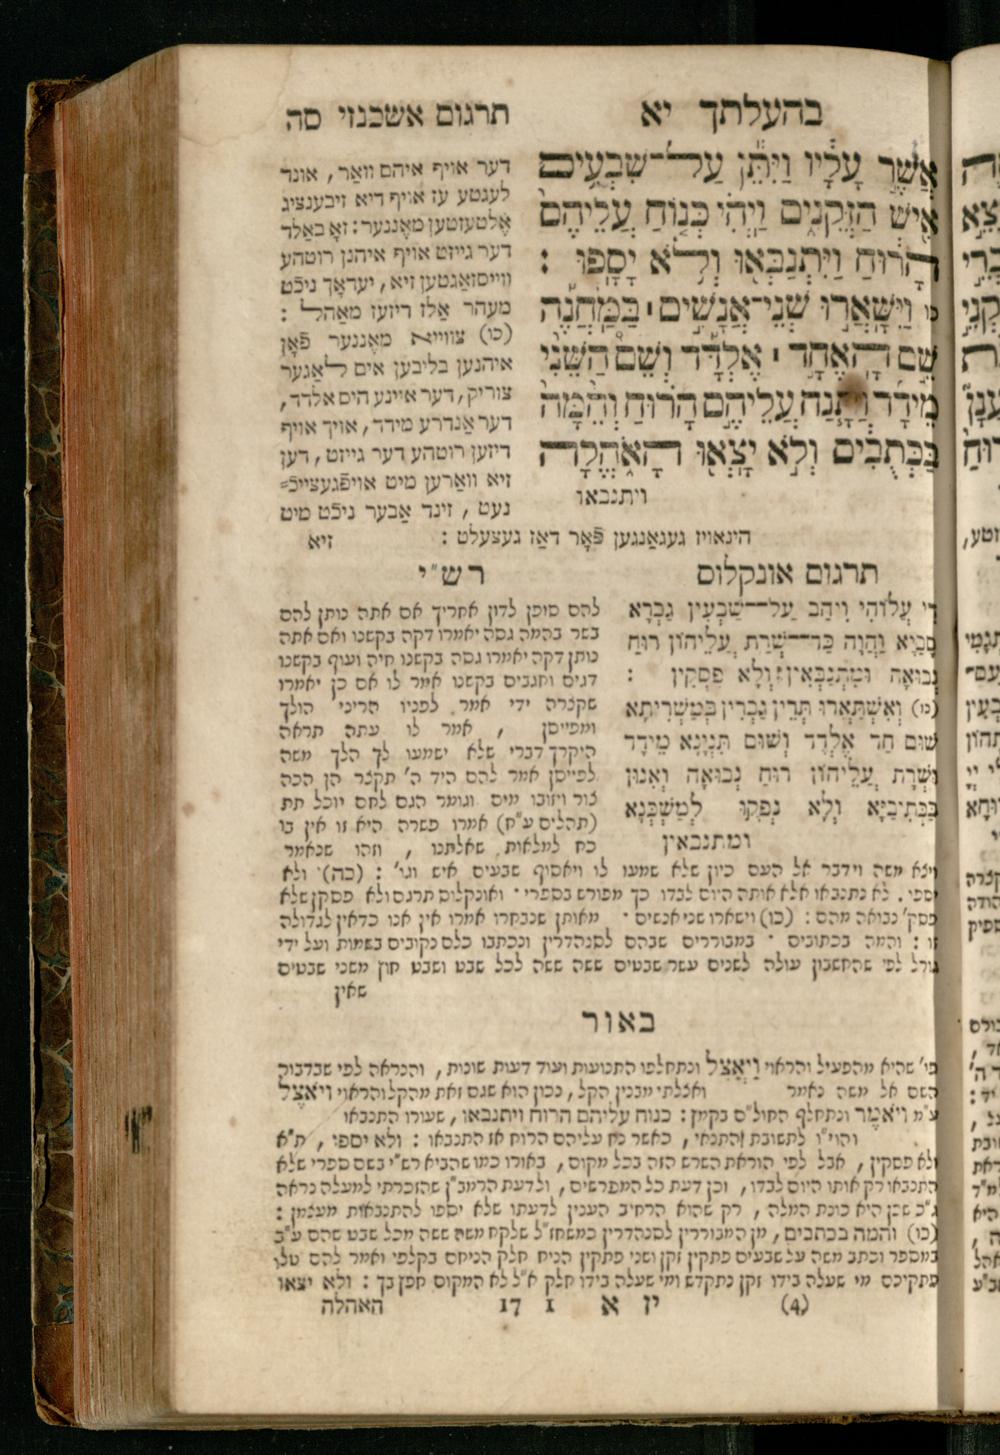 בהעלתך יא
תרגום אשכנזי סה
אֲשֶׁר עָלָיו וַיִּתֵּן עַל־שִׁבְעִים
אִישׁ הַזְּקֵנִים וַיְהִי כְּנוֹחַ עֲלֵיהֶם
הָרוּחַ וַיִּתְנַבְּאוּ וְלֹא יָסָפוּ :
כו וַיִּשָּׁאֲרוּ שְׁנֵי־אֲנָשִׁים ׀ בַּמַּחֲנֶה
שֵׁם הָאֶחָד ׀ אֶלְדָּד וְשֵׁם הַשֵּׁנִי
מֵידָד וַתָּנַח עֲלֵיהֶם הָרוּחַ וְהֵמָּה
בַּכְּתֻבִים וְלֹא יָצְאוּ הָאֹהֱלָה
ויתנבאו
דער אויף איהם וואַר , אונד
לעגטע עז אויף דיא זיבענציג
אֶלטעזטען מאֶננער : זאָ באַלד
דער גייזט אויף איהנן רוטהע
ווייסזאַגטען זיא , יעדאָך ניכֿט
מעהר אַלז דיזעז מאַהל :
(כו) צווייא מאֶננער פֿאָן
איהנען בליבען אים לאַגער
צוריק , דער איינע היס אלדד ,
דער אַנדרע מידד , אויך אויף
דיזען רוטהע דער גייזט , דען
זיא וואַרען מיט אויפֿגעצייכֿ=
נעט , זינד אַבער ניכֿט מיט
הינאויז געגאַנגען פֿאָר דאַז געצעלט :
זיא
תרגום אונקלוס
דִי עֲלוֹהִי וִיהַב עַל־שַׁבְעִין גַּבְרָא
סָבַיָּא וַהֲוָה כַּד־שְׁרַת עֲלֵיהוֹן רוּחַ
נְבוּאָה וּמִתְנַבְּאִין וְלָא פָסְקִין :
(כו) וְאִשְׁתָּאֲרוּ תְּרֵין גֻּבְרִין בְּמַשְׁרִיתָא
שׁוּם חַד אֶלְדָּד וְשׁוּם תִּנְיָנָא מֵידָד
וּשְׁרַת עֲלֵיהוֹן רוּחַ נְבוּאָה וְאִנּוּן
בִּכְתִיבַיָּא וְלָא נְפַקוּ לְמַשְׁכְּנָא
ומתנבאין
רש"י
להם סיפן לדון אחריך אם אתה נותן להם
בשר בהמה גסה יאמרו דקה בקשנו ואם אתה
נותן דקה יאמרו גסה בקשנו חיה ועוף בקשנו
דגים וחגבים בקשנו אמר לו אם כן יאמרו
שקצרה ידי אמר לפניו הריני הולך
ומפייסן , אמר לו עתה תראה
היקרך דברי שלא ישמעו לך הלך משה
לפייסן אמר להם היד ה' תקצר הן הכה
צור ויזובו מים וגומר הגם לחם יוכל תת
(תהלים ע"ח) אמרו פשרה היא זו אין בו
כח למלאות שאלתנו , וזהו שנאמר
ויצא משה וידבר אל העם כיון שלא שמעו לו ויאסוף שבעים איש וגו' : (כה) ולא
יספו . לא נתנבאו אלא אותה היום לבדו כך מפורש בספרי · ואונקלוס תרגם ולא פסקן שלא
פסק' נבואה מהם : (כו) וישארו שני אנשים · מאותן שנבחרו אמרו אין אנו כדאין לגדולה
זו : והמה בכתובים · במבוררים שבהם לסנהדרין ונכתבו כלם נקובים בשמות ועל ידי
גורל לפי שהחשבון עולה לשנים עשר שבטים ששה ששה לכל שבט ושבט חוץ משני שבטים
שאין
באור
פי' שהיא מהפעיל והראוי וַיַּאֲצֶל ונתחלפו התנועות ועוד דעות שונות , והנראה לפי שבדבוק
השם אל משה נאמר ואצלתי מבנין הקל , נכון הוא שגם זאת מהקל והראוי ויאצל
ע"מ ויאמר ונתחלף החול"ם בקמץ : כנוח עליהם הרוח ויתנבאו , שעורו התנבאו
והוי"ו לתשובת התנאי , כאשר נח עליהם הרוח אז התנבאו : ולא יספו , ת"א
ולא פסקין , אבל לפי הוראת השרש הזה בכל מקום , באורו כמו שהביא רש"י בשם ספרי שלא
התנבאו רק אותו היום לבדו , וכן דעת כל המפרשים , ולדעת הרמב"ן שהזכרתי למעלה נראה
ג"כ שכן היא כונת המלה , רק שהוא הרחיב הענין לדעתו שלא יספו להתנבאות מעצמן :
(כו) והמה בכתבים , מן המבוררין לסנהדרין כמשחז"ל שלקח משה ששה מכל שבט שהם ע"ב
במספר וכתב משה על שבעים פתקין זקן ושני פתקין הניח חלק הניחם בקלפי ואמר להם טלו
פתקיכם מי שעלה בידו זקן נתקדש ומי שעלה בידו חלק א"ל לא המקום חפץ בך : ולא יצאו
(4) יז א 1 17 האהלה